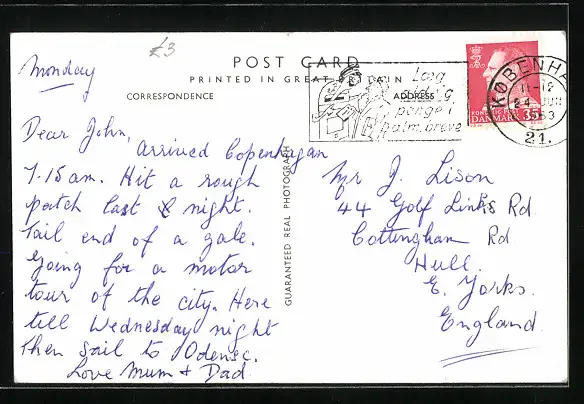 £3
POST CARD
PRINTED IN GREAT BRITAIN
CORRESPONDENCE
ADDRESS
Monday
Dear John,
Arrived Copenhagan
7.15 am. Hit a rough
patch last & night.
Tail end of a gale.
Going for a motor
tour of the city. Here
till Wednesday night
then sail to Odense.
Love Mum & Dad
GUARANTEED REAL PHOTOGRAPH
Læg
penge i
alm. breve
DANMARK 35
KØBENHA
11-12
24 JUN
21.
Mr J. Lison
44 Golf Links Rd
Cottingham Rd
Hull.
E. Yorks.
England